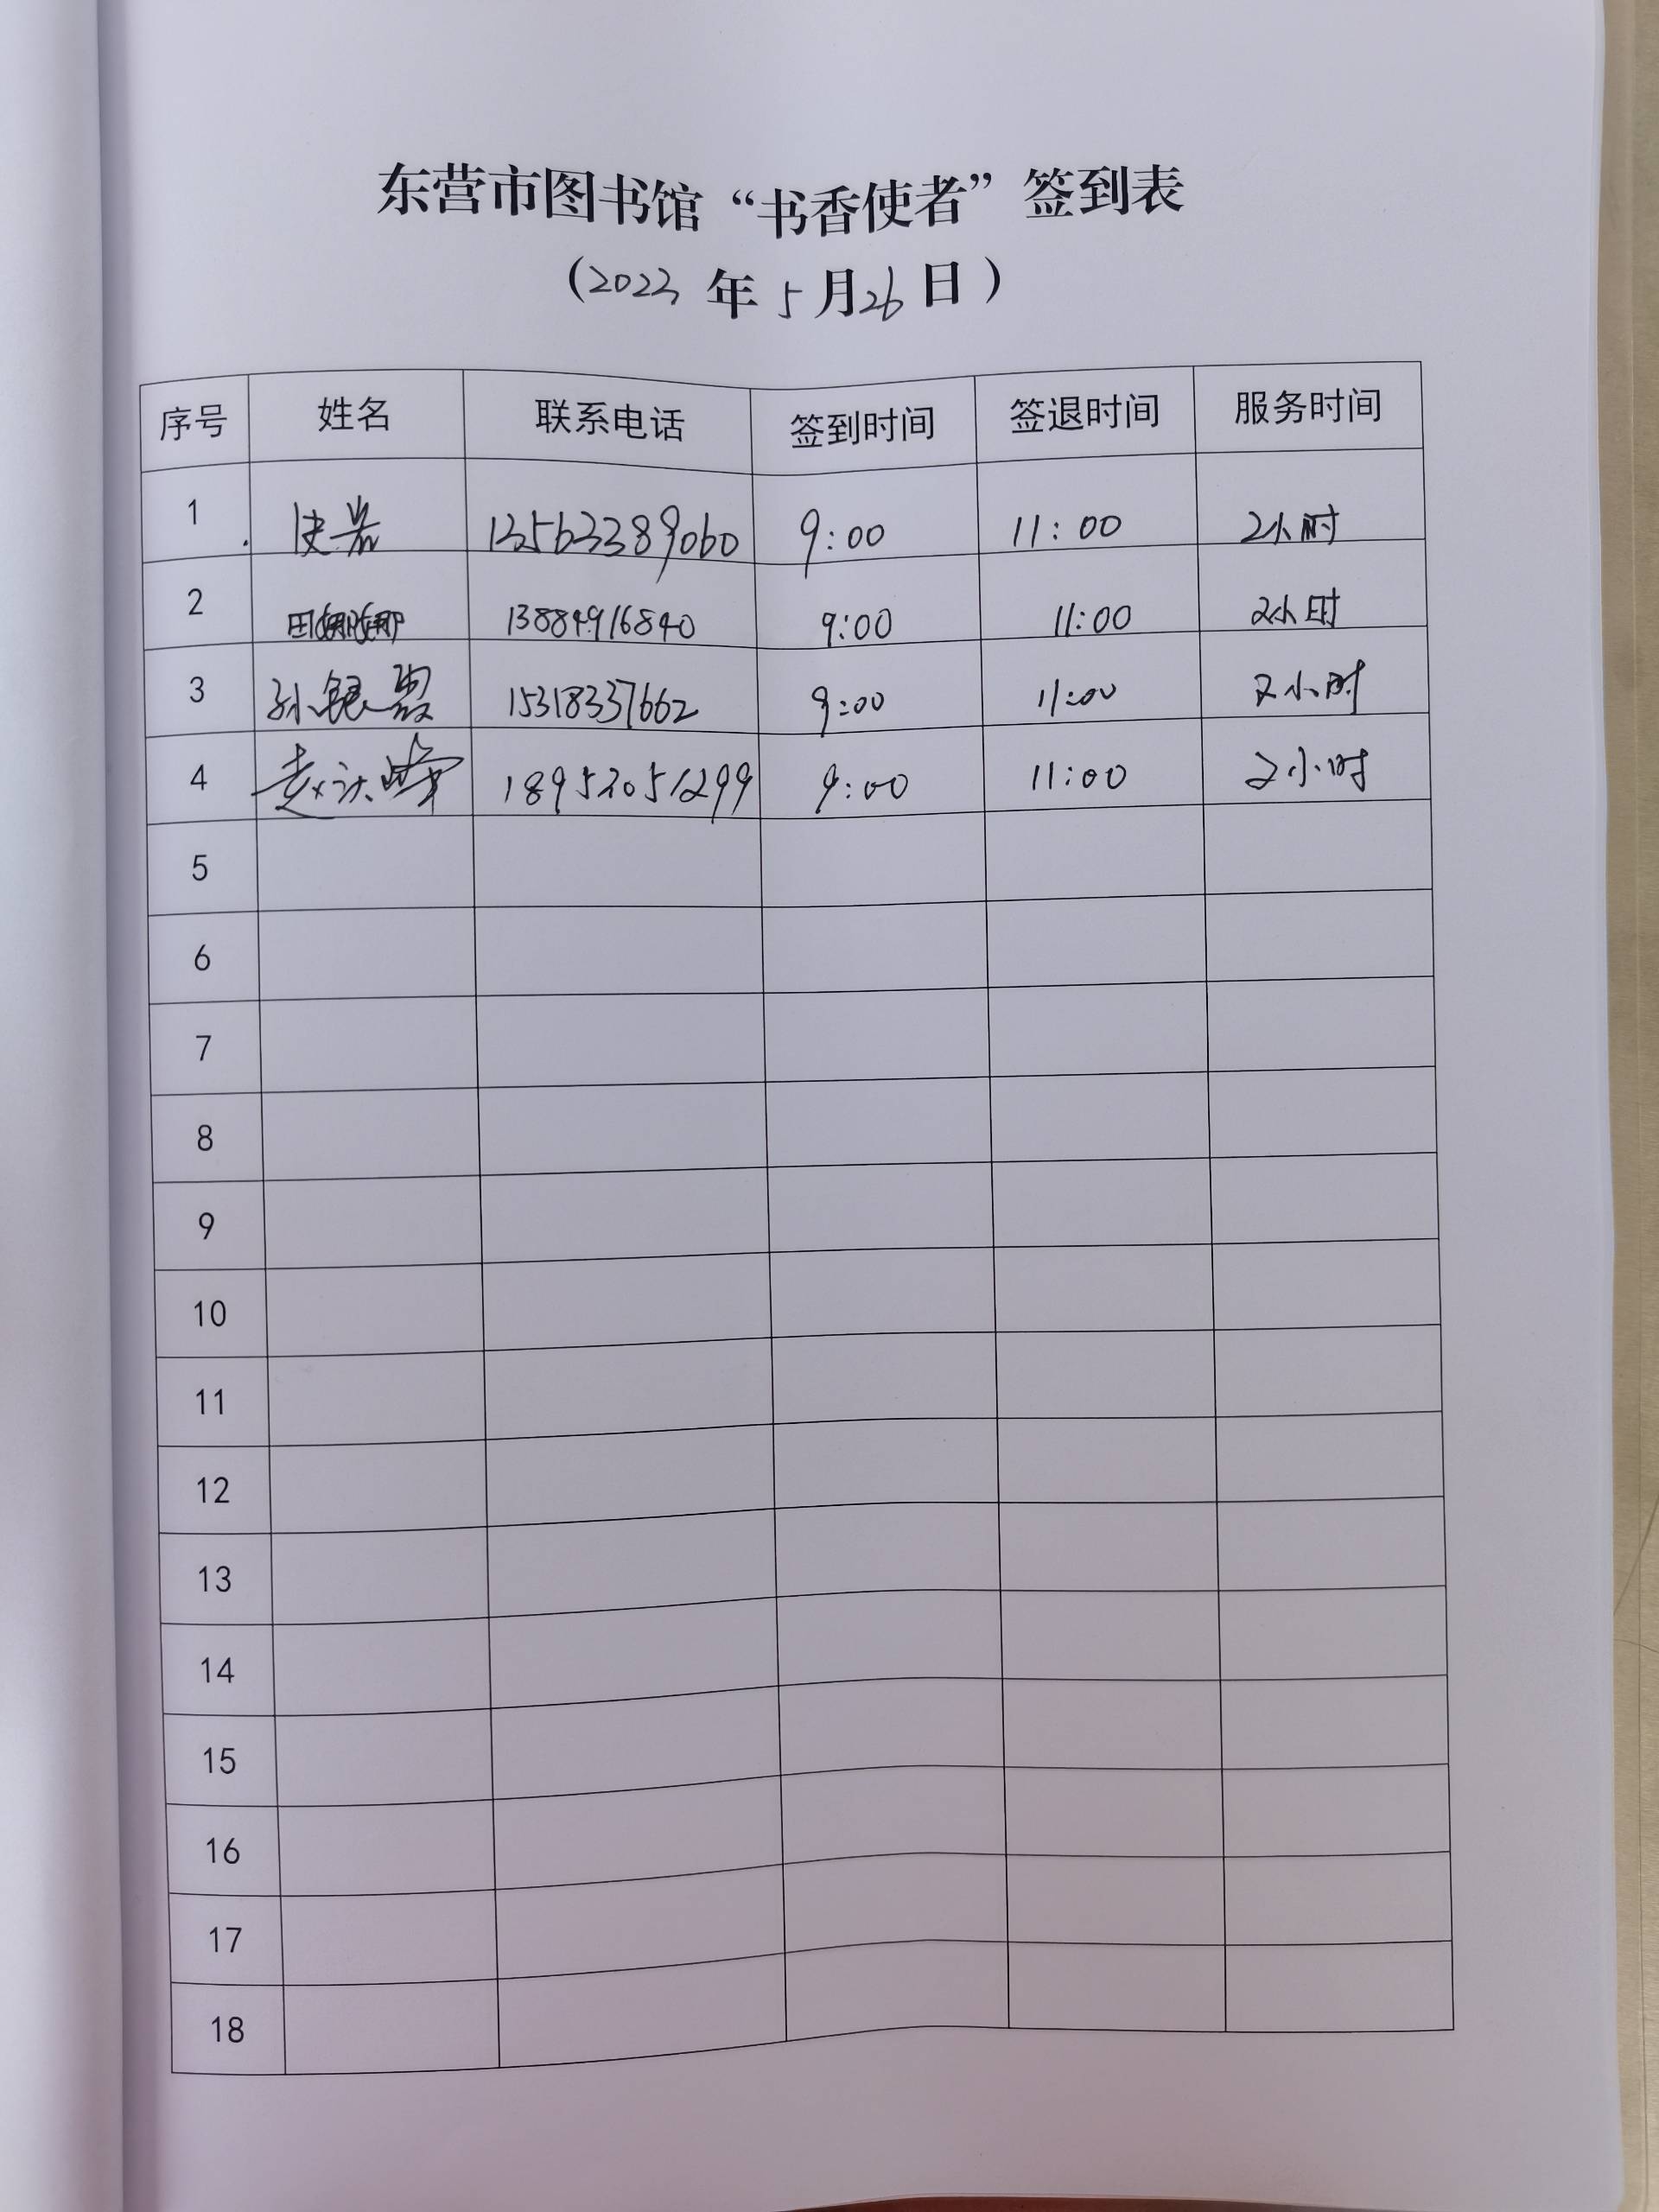 东营市图书馆“书香使者”签到表
(2022年5月26日)
序号 姓名 联系电话 签到时间 签退时间 服务时间
1 13563389060 9:00 11:00 2小时
2 田娜娜 13884916840 9:00 11:00 2小时
3 孙银 15318337662 9:00 11:00 2小时
4 赵 18952051299 9:00 11:00 2小时
5
6
7
8
9
10
11
12
13
14
15
16
17
18